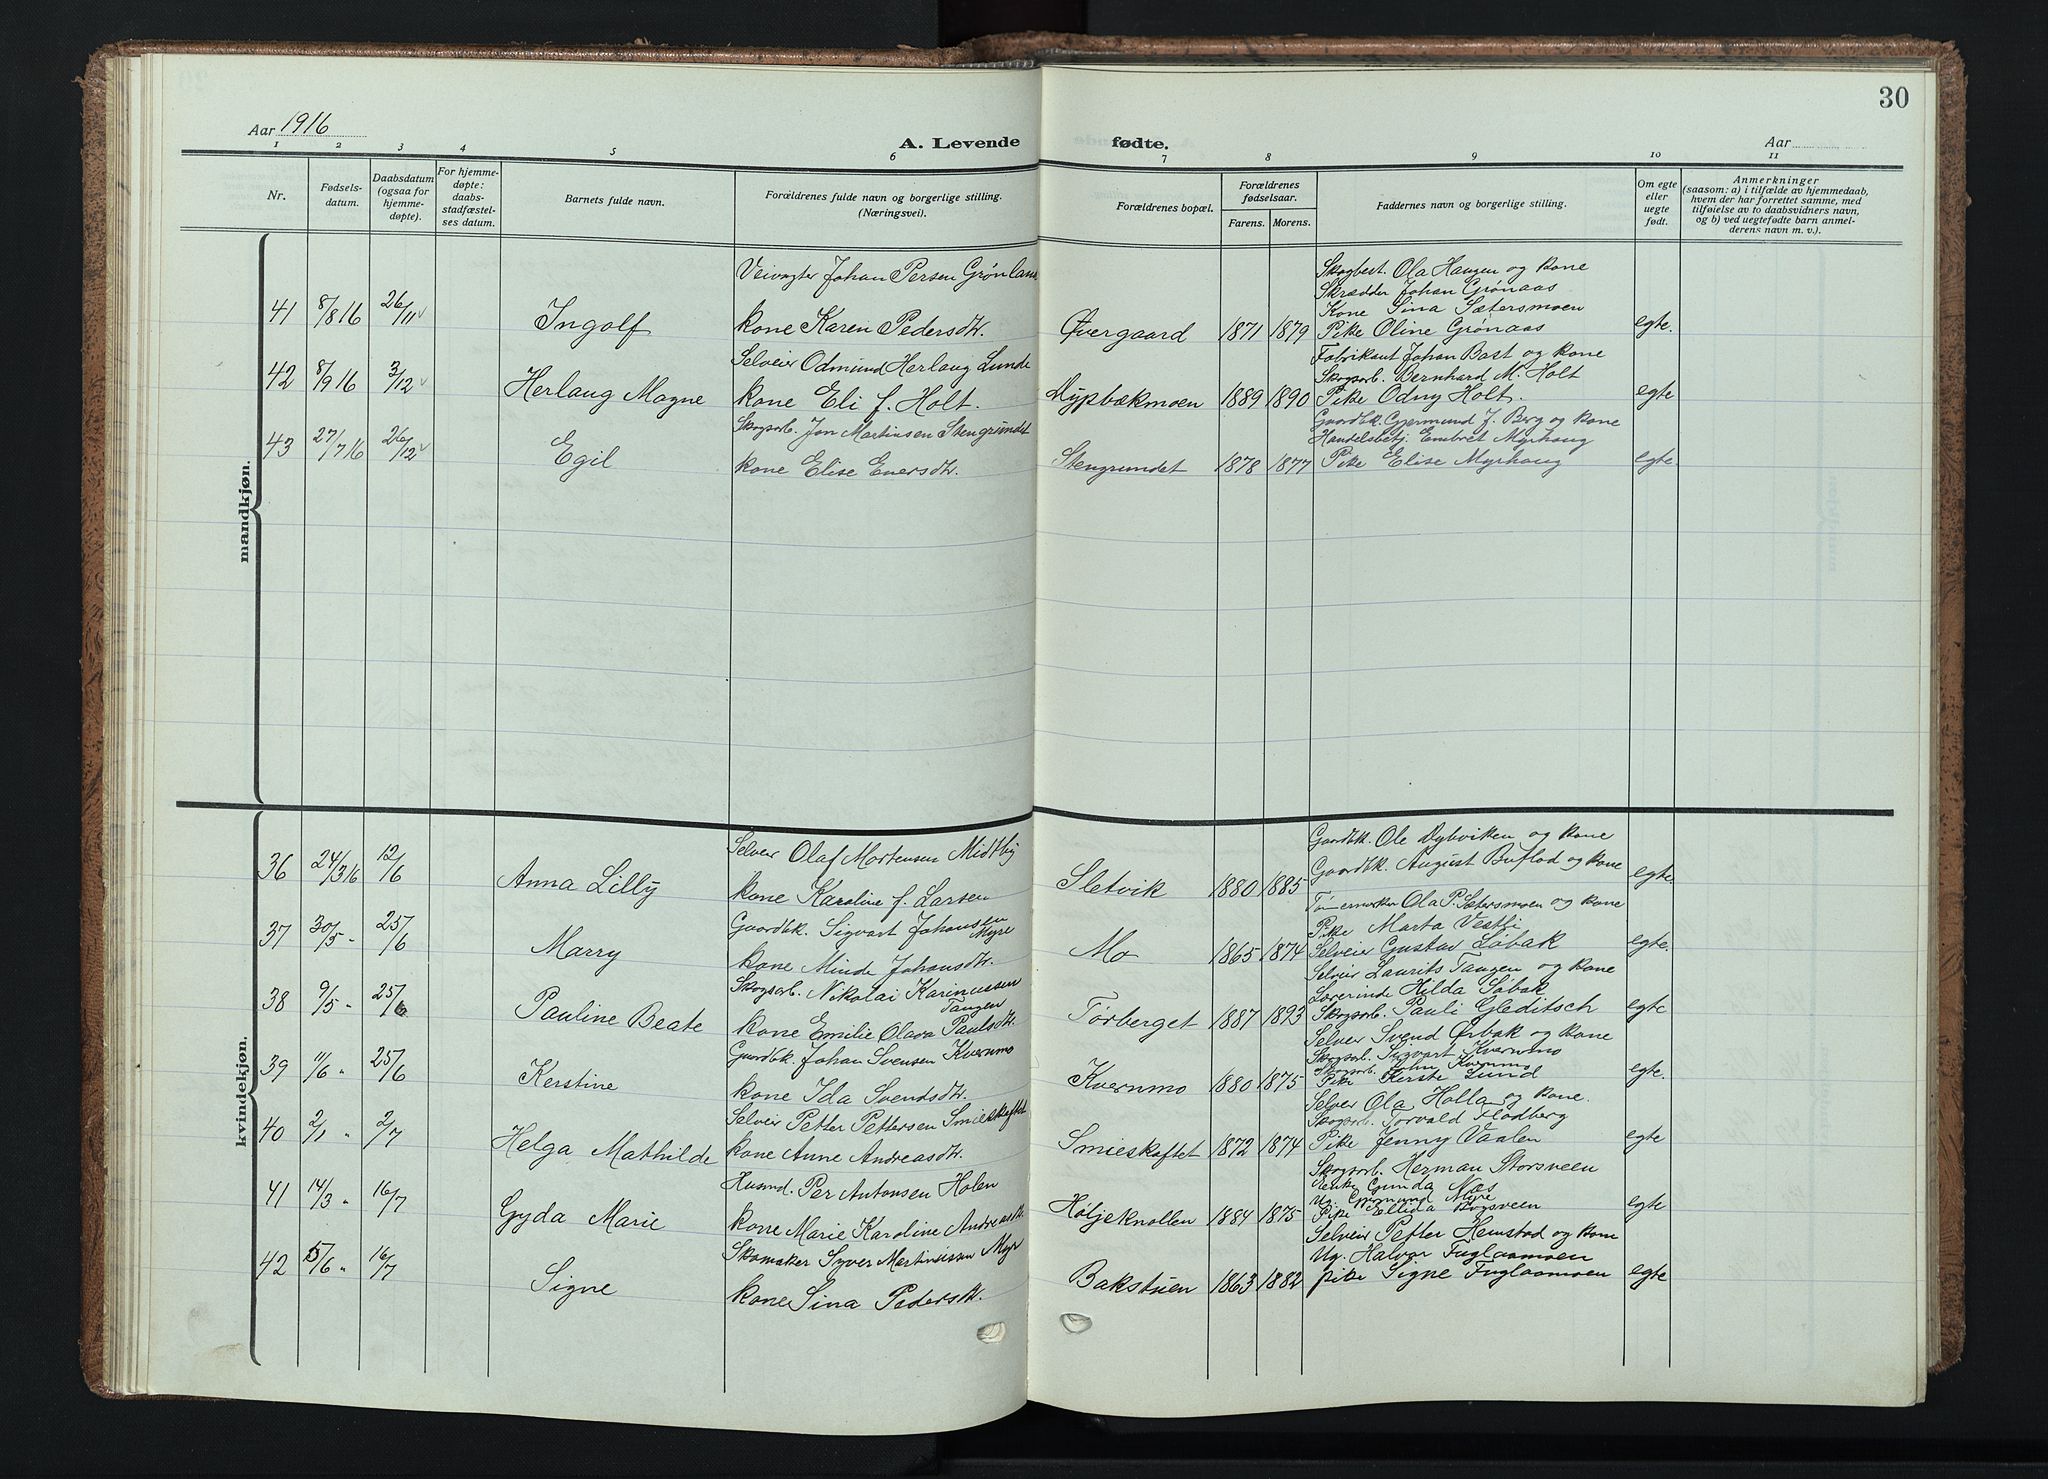 30
Aar 1916
A. Levende fødte.
Aar
1 2 3 4 5 6 7 8 9 10 11
Nr.
Fødsels-
datum.
Daabsdatum
(ogsaa for
hjemme-
døpte).
For hjemme-
døpte:
daabs-
stadfæstel-
ses datum.
Barnets fulde navn.
Forældrenes fulde navn og borgerlige stilling.
(Næringsvei).
Forældrenes bopæl.
Forældrenes
fødselsaar.
Farens. Morens.
Faddernes navn og borgerlige stilling.
Om egte
eller
uegte
født.
Anmerkninger
(saasom: a) i tilfælde av hjemmedaab,
hvem der har forrettet samme, med
tilføielse av to daabsvidners navn,
og b) ved uegtefødte barn anmel-
derens navn m. v.).
mandkjøn.
Veivogter Johan Persen Grønland
41 8/8 16 26/11 Ingolf kone Karen Pedersdtr. Øvergaard 1871 1879
Skogbest. Ola Haugen og kone
Skrædder Johan Grønaas
Kone Sina Sætersmoen
Pike Oline Grønaas egte.
Selveier Odmund Herlaug Lunde
42 8/9 16 3/12 Herlaug Magne kone Eli f. Holt. Dypbækmoen 1889 1890
Fabrikant Johan Bast og kone
Skogsarb. Bernhard M. Holt
Pike Odny Holt. egte
Skogsarb. Jon Martinsen Stengrundet
43 27/7 16 26/12 Egil kone Elise Enersdtr. Stengrundet 1878 1877
Gaardbk. Gjermund J. Berg og kone
Handelsbetj. Embret Myrhaug
Pike Elise Myrhaug egte.
kvindekjøn.
Selveier Olaf Mortensen Midtby
36 24/3 16 12/6 Anna Lilly kone Karoline f. Larsen Sletvik 1880 1885
Gaardbk. Ole Dybviken og kone
Gaardbk. August Buflod og kone egte.
Gaardbk. Sigvart Johansen
Myre
37 30/5 " 25/6 Marry kone Minde Johansdtr. Mo 1865 1874
Tømmermerker Ola P. Sætersmoen og kone
Pike Marta Vestli
Selveier Gustav Løbak egte.
Skogsarb. Nikolai Karinussen
Tangen
38 9/5 " 25/6 Pauline Beate kone Emilie Olava Paulsdtr. Torberget 1887 1893
Selveier Laurits Tangen og kone
Lærerinde Hilda Løbak
Skogsarb. Pauli Gleditsch egte
Gaardbk. Johan Svensen Kvernmo
39 11/6 " 25/6 Kerstine kone Ida Svendsdtr. Kvernmo 1880 1875
Selveier Svend Ørbak og kone
Skogsarb. Sigvart Kvernmo
Skogsarb. John Kvernmo
Pike Kerste Lund egte.
Selveier Petter Pettersen Smieskaftet
40 2/1 " 2/7 Helga Mathilde kone Anne Andreasdtr. Smieskaftet 1872 1874
Selveier Ola Holla og kone.
Skogsarb. Torvald Flodberg
Pike Jenny Vaalen egte
Husmd. Per Antonsen Holen
41 14/3 " 16/7 Gyda Marie kone Marie Karoline Andreasdtr. Høljeknollen 1884 1875
Skogsarb. Herman Storsveen
Enke Gunda Næs
Ug. Gjermund Myre
Pike Ellida Bogsveen egte
Skomaker Syver Martinussen Myr
42 15/6 " 16/7 Signe kone Sina Pedersdtr. Bakstuen 1863 1882
Selveier Petter Hemstad og kone
Ug. Halvor Fuglaamoen
pike Signe Fuglaamoen egte